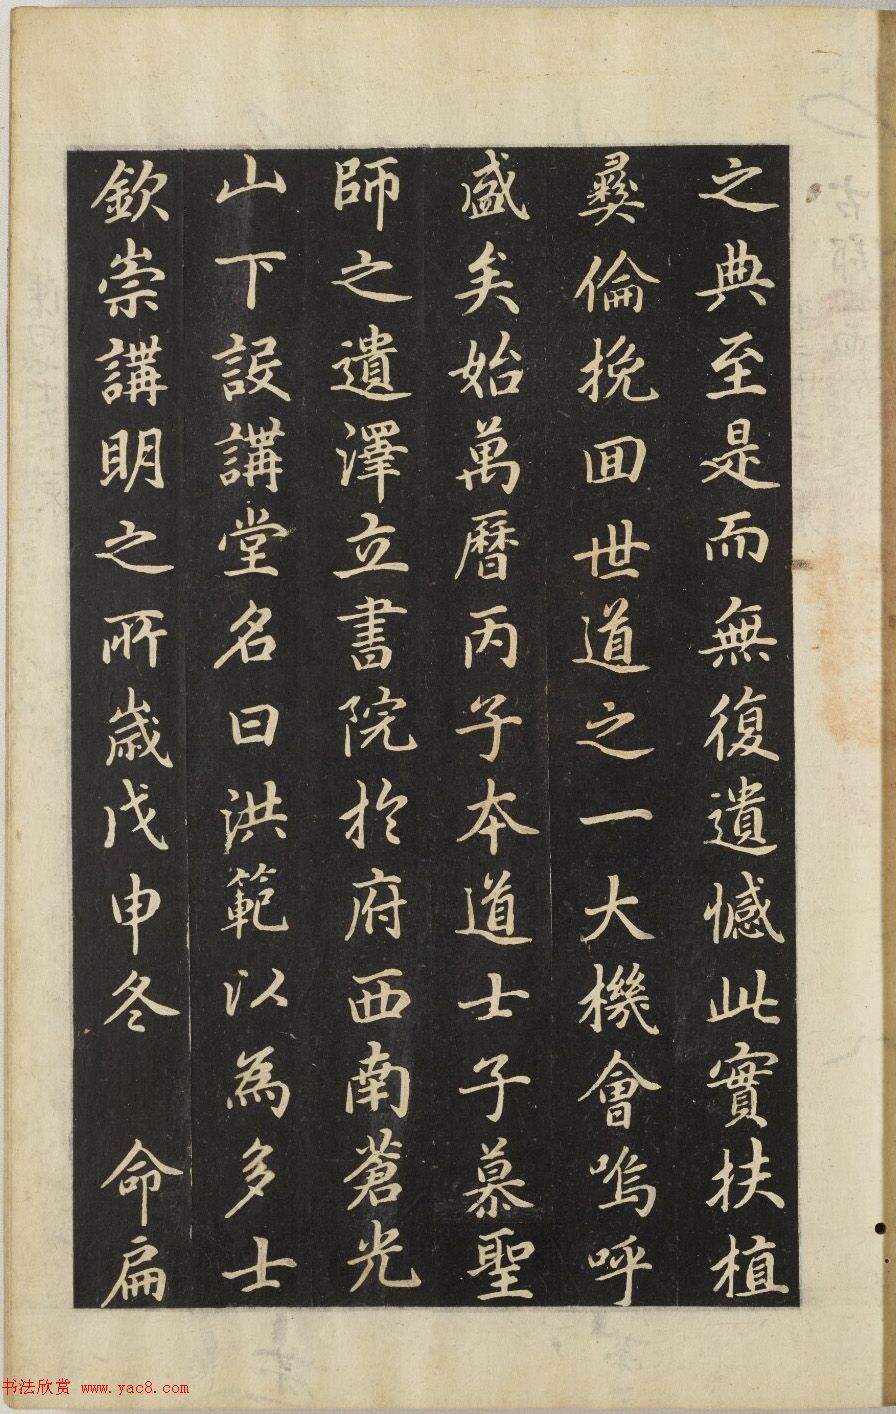 之典至是而無復遺憾此實扶植
彜倫挽囬世道之一大機會嗚呼
盛矣始萬曆丙子本道士子慕聖
師之遺澤立書院於府西南蒼光
山下設講堂名曰洪範以為多士
欽崇講明之所歲戊申冬 命扁
书法欣赏 www.yac8.com